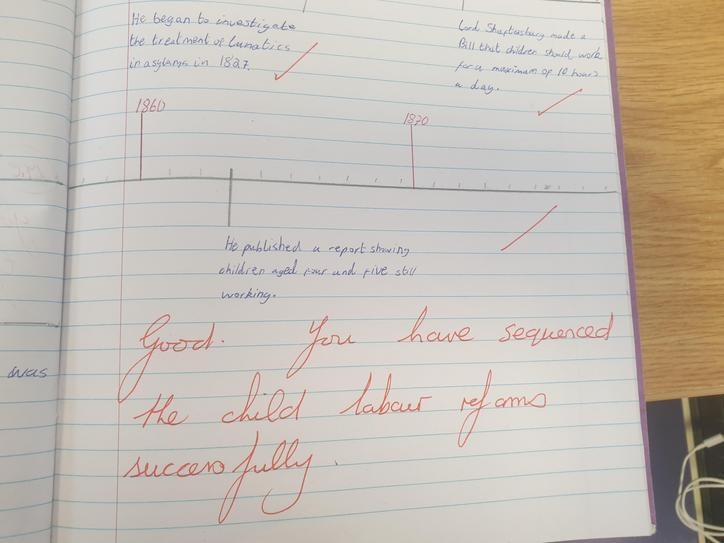 He began to investigate
the treatment of lunatics
in asylums in 1827.
Lord Shaftesbury made a
Bill that children should work
for a maximum of 10 hours
a day.
1860
1870
He published a report showing
children aged four and five still
working.
was
Good. You have sequenced
the child labour reforms
successfully.